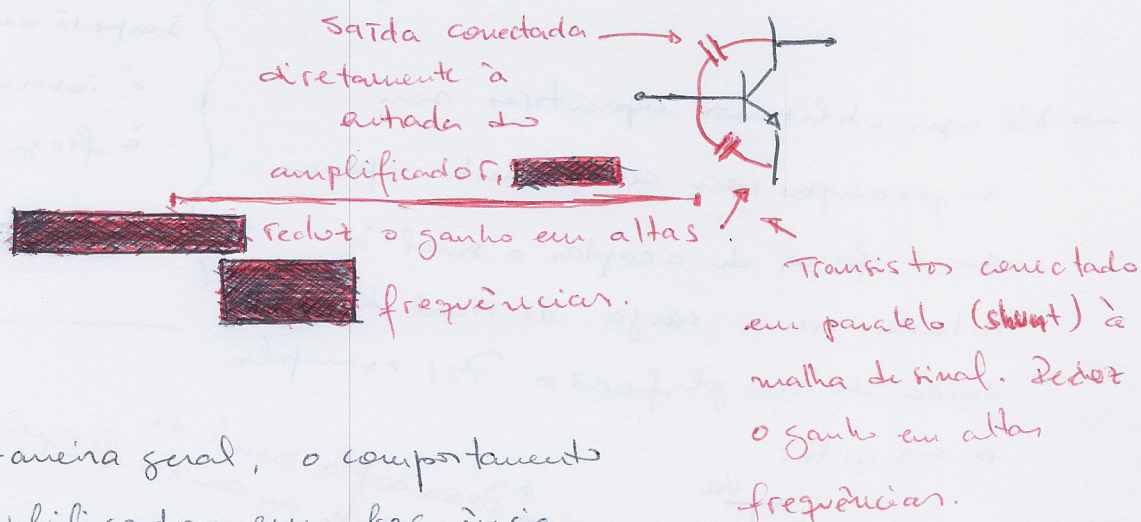 Saída conectada
diretamente à
entrada do
amplificador,
reduz o ganho em altas
frequências.
Transistor conectado
em paralelo (shunt) à
malha de sinal. Reduz
o ganho em altas
frequências.
aneira geral, o comportamento
em frequência